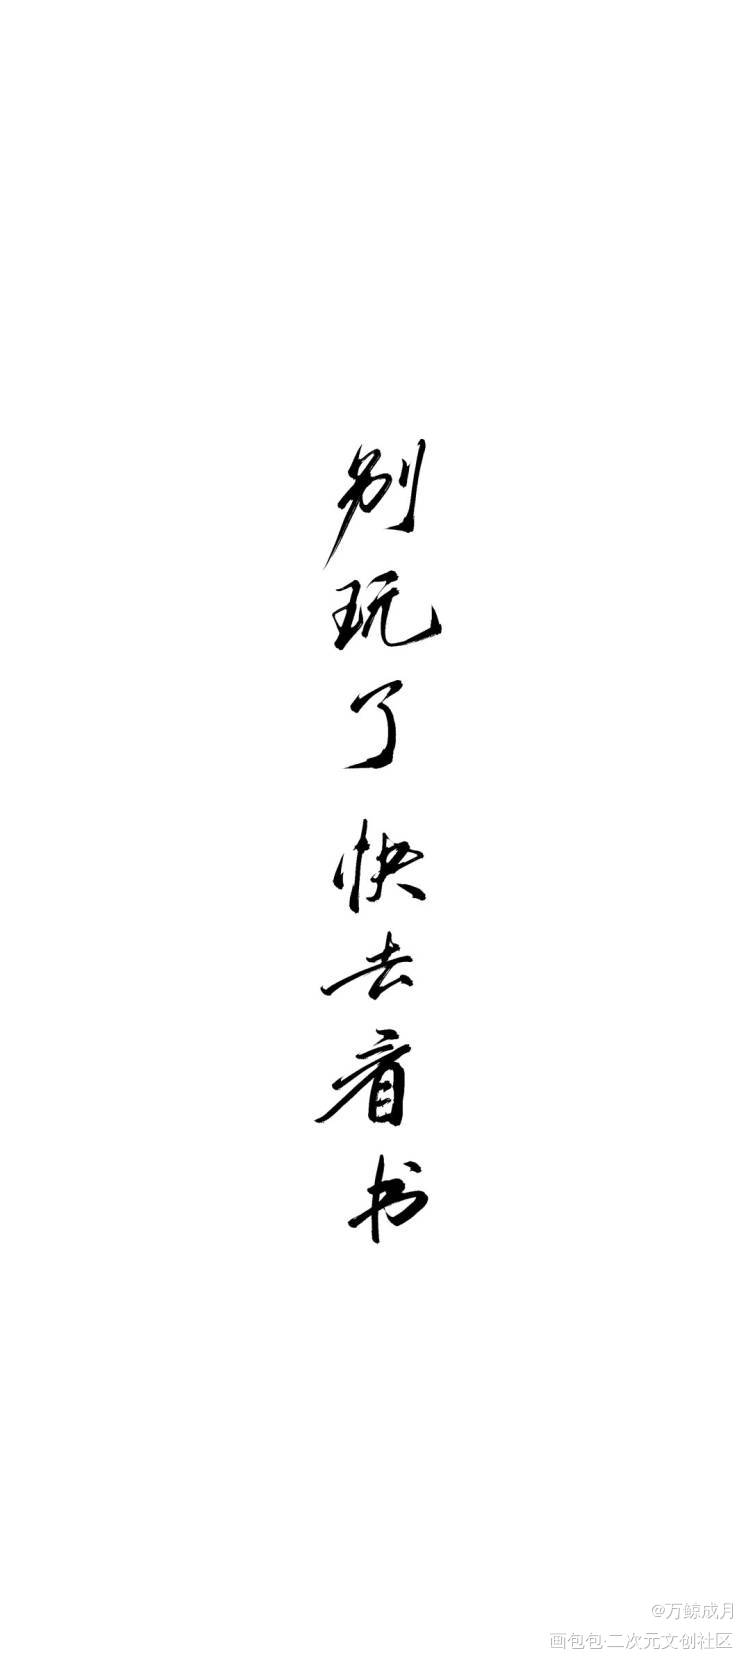 别玩了 快去看书
@万鲸成月
画包包·二次元文创社区